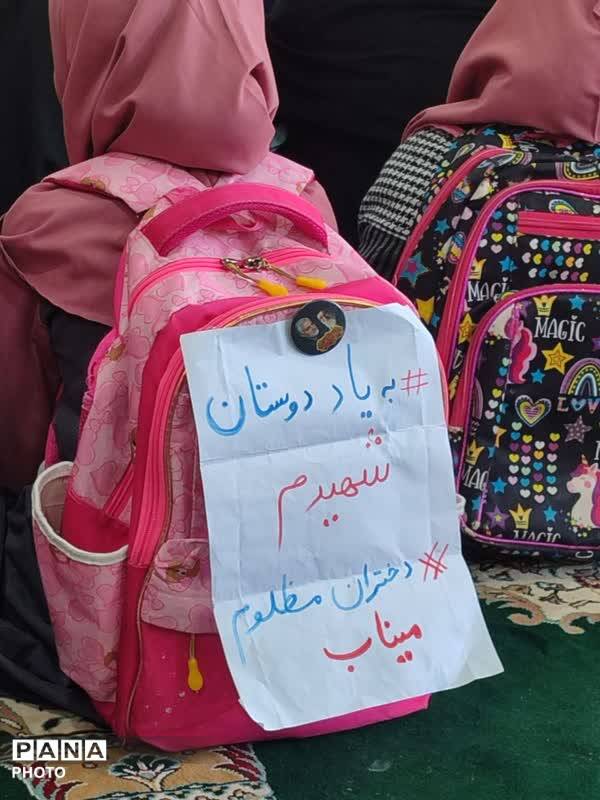 #به یاد دوستان
شهیدم
#دختران مظلوم
میناب
MAGIC
MAGIC
LOVE
PANA
PHOTO